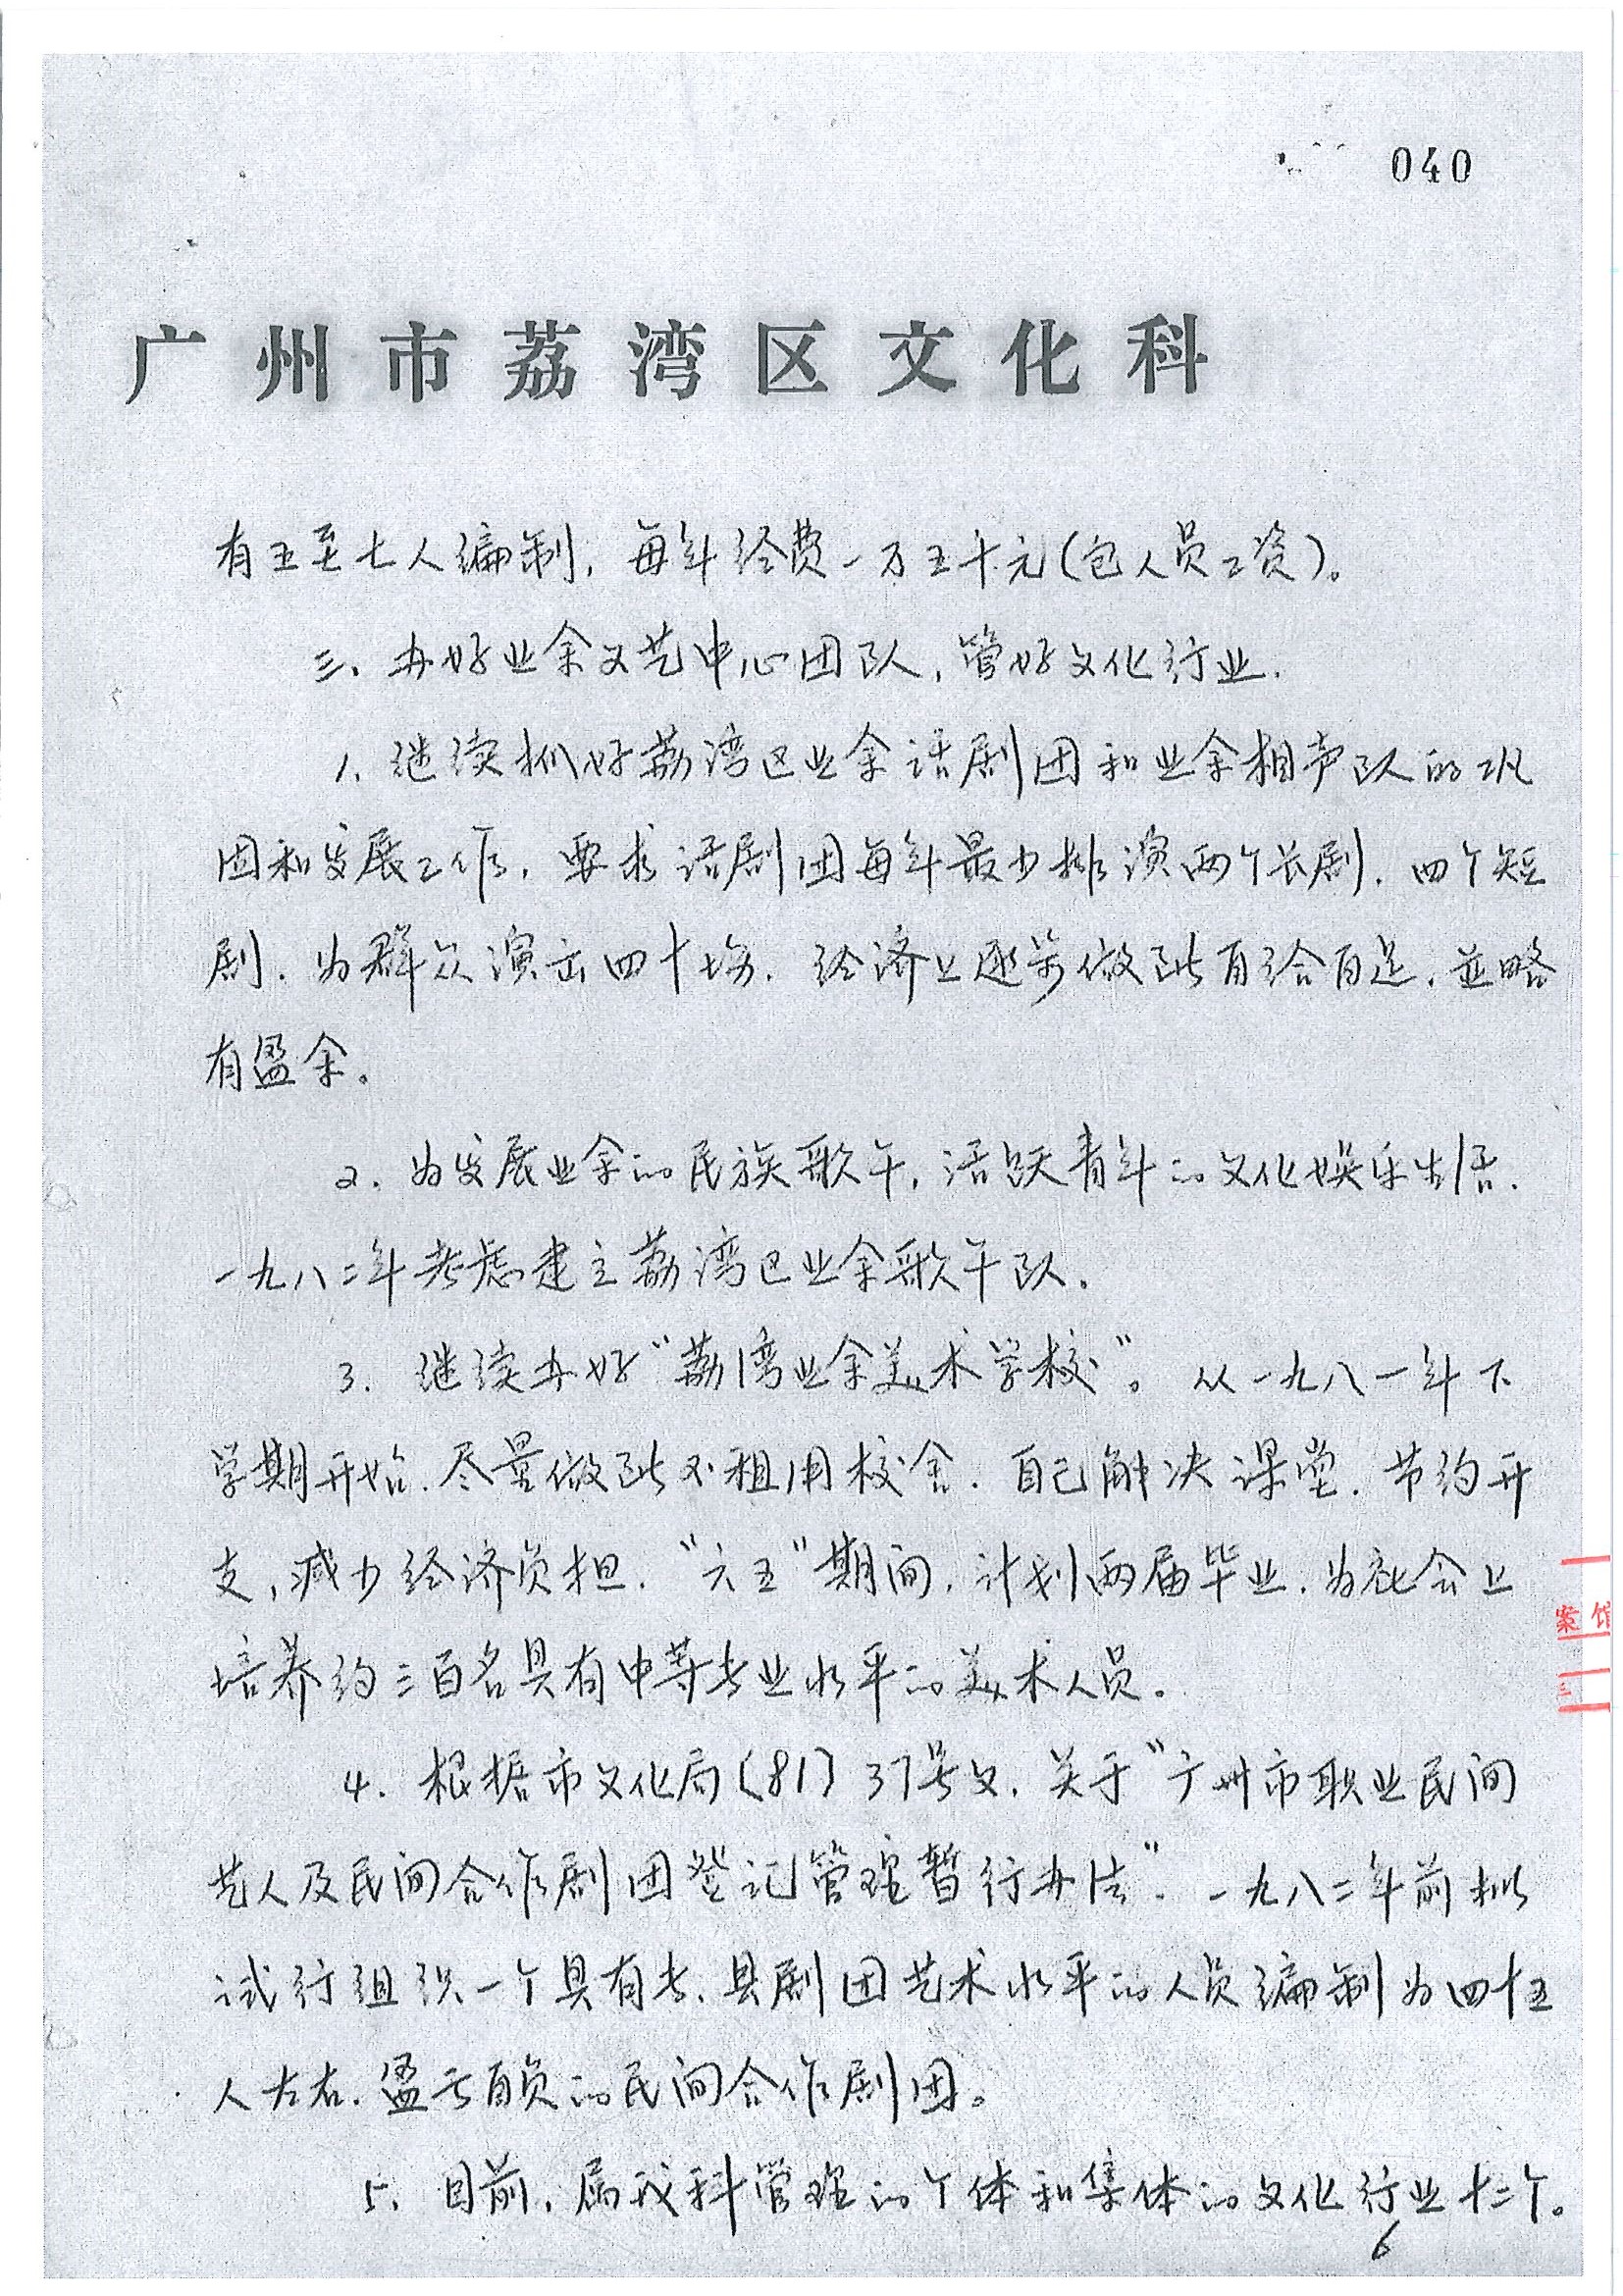 040
广州市荔湾区文化科
有五至七人编制，每年经费一万五千元(包人员工资)。
三、办好业余文艺中心团队，管好文化行业.
1. 继续抓好荔湾区业余话剧团和业余相声队的巩
固和发展工作，要求话剧团每年最少排演两个长剧，四个短
剧，为群众演出四十场，经济上逐步做到自给自足，並略
有盈余。
2. 为发展业余的民族歌午，活跃青年的文化娱乐生活，
一九八二年考虑建立荔湾区业余歌午队.
3. 继续办好“荔湾业余美术学校”。从一九八一年下
学期开始，尽量做到不租用校舍，自己解决课堂，节约开
支，减少经济负担，“六五”期间，计划两届毕业，为社会上
培养约三百名具有中等专业水平的美术人员.
4. 根据市文化局〔81〕37号文，关于“广州市职业民间
艺人及民间合作剧团登记管理暂行办法”，一九八二年前拟
试行组织一个具有专、县剧团艺术水平的人员编制为四十五
人左右，盈亏自负的民间合作剧团。
5. 目前，属我科管理的个体和集体的文化行业十二个。
6
案馆